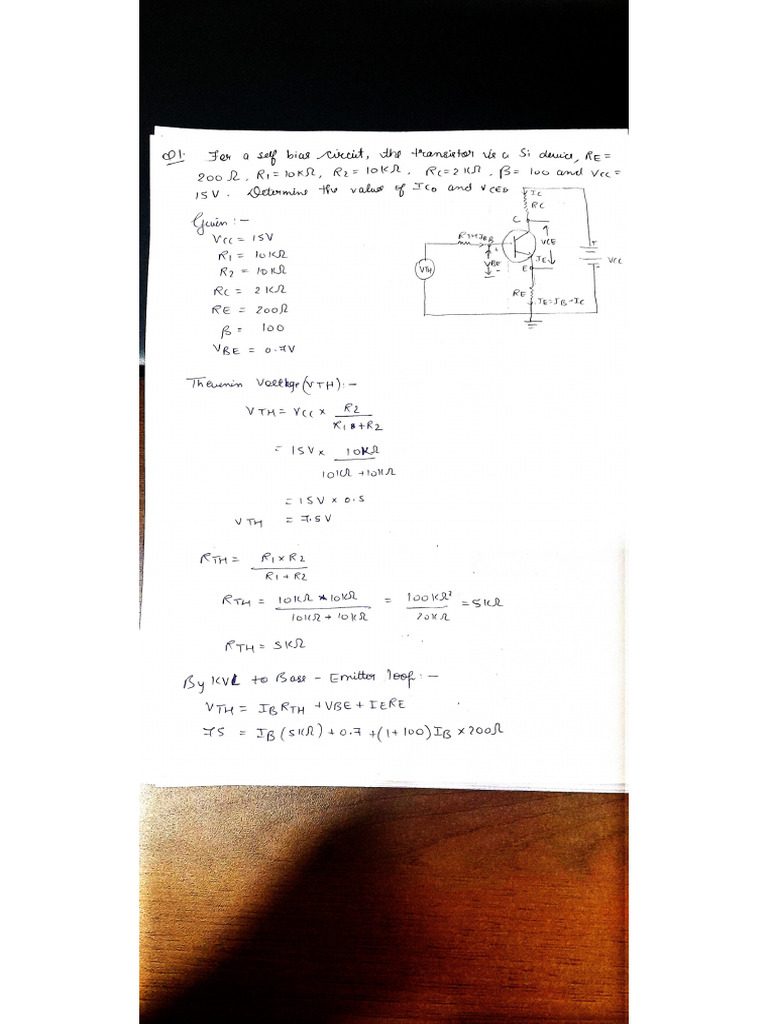 Q1. For a self bias circuit, the transistor is a Si device, RE =
200 Ω, R1 = 10KΩ, R2 = 10KΩ, RC = 2KΩ, β = 100 and VCC =
15V. Determine the value of ICQ and VCEQ
Given :-
VCC = 15V
R1 = 10KΩ
R2 = 10KΩ
RC = 2KΩ
RE = 200Ω
β = 100
VBE = 0.7V
IC
RC
C
RTH
IB
+
VCE
VBE
-
IE
E
VTH
RE
IE = IB + IC
+
VCC
-
Thevenin Voltage (VTH) :-
VTH = VCC × R2
R1 + R2
= 15V × 10KΩ
10KΩ + 10KΩ
= 15V × 0.5
VTH = 7.5V
RTH = R1 × R2
R1 + R2
RTH = 10KΩ × 10KΩ = 100KΩ² = 5KΩ
10KΩ + 10KΩ 20KΩ
RTH = 5KΩ
By KVL to Base - Emitter loop :-
VTH = IBRTH + VBE + IERE
75 = IB (5KΩ) + 0.7 + (1+100) IB × 200Ω